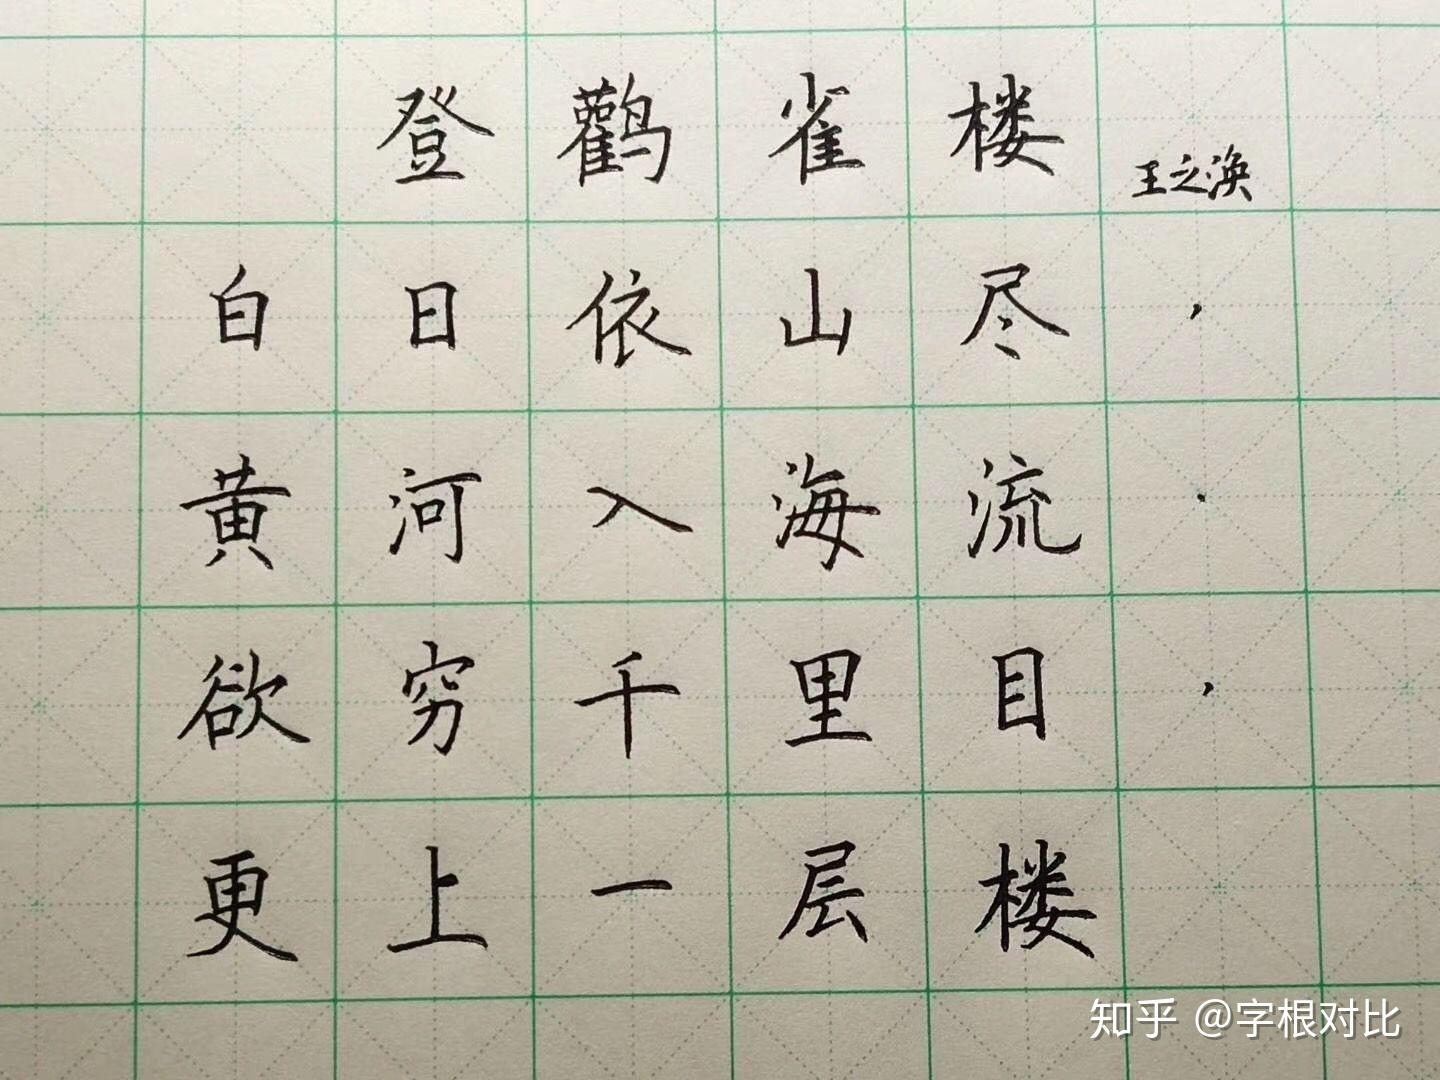 登鹳雀楼 王之涣
白日依山尽，
黄河入海流．
欲穷千里目，
更上一层楼
知乎 @字根对比